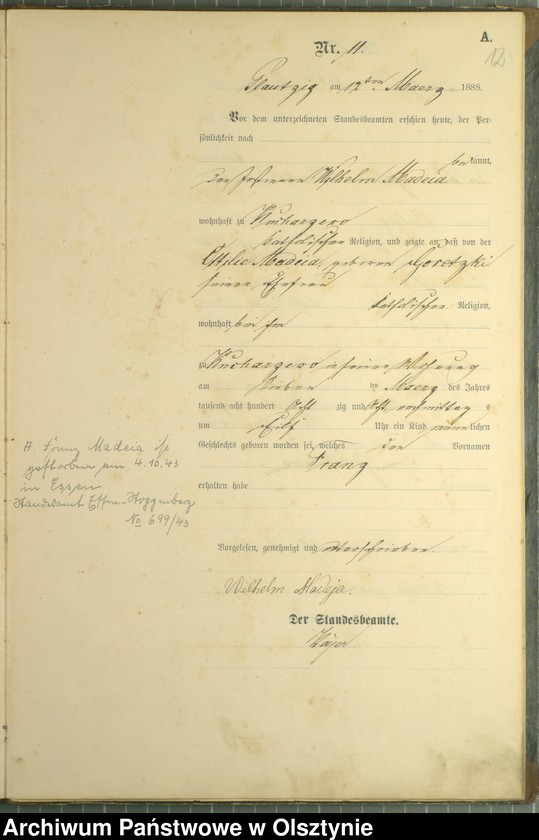 A.
12
Nr. 11.
Plautzig am 12ten Maerz 1888.
Vor dem unterzeichneten Standesbeamten erschien heute, der Per-
sönlichkeit nach
bekannt,
der Wilhelm Madeia
wohnhaft zu Kucharzewo
katholischer Religion, und zeigte an, daß von der
Ottilie Madeia, geborene Goretzki
seiner Ehefrau
katholischer Religion,
wohnhaft bei ihm
zu Kucharzewo in seiner Wohnung
am sieben ten Maerz des Jahres
tausend acht hundert acht zig und acht, vormittag s
um Elf Uhr ein Kind männlichen
Geschlechts geboren worden sei, welches den Vornamen
Franz
erhalten habe
Vorgelesen, genehmigt und unterschrieben.
Wilhelm Madeja.
Der Standesbeamte.
H. Franz Madeia ist
gestorben am 4.10.43
in Essen
Standesamt Essen-
No 699/43
Archiwum Państwowe w Olsztynie